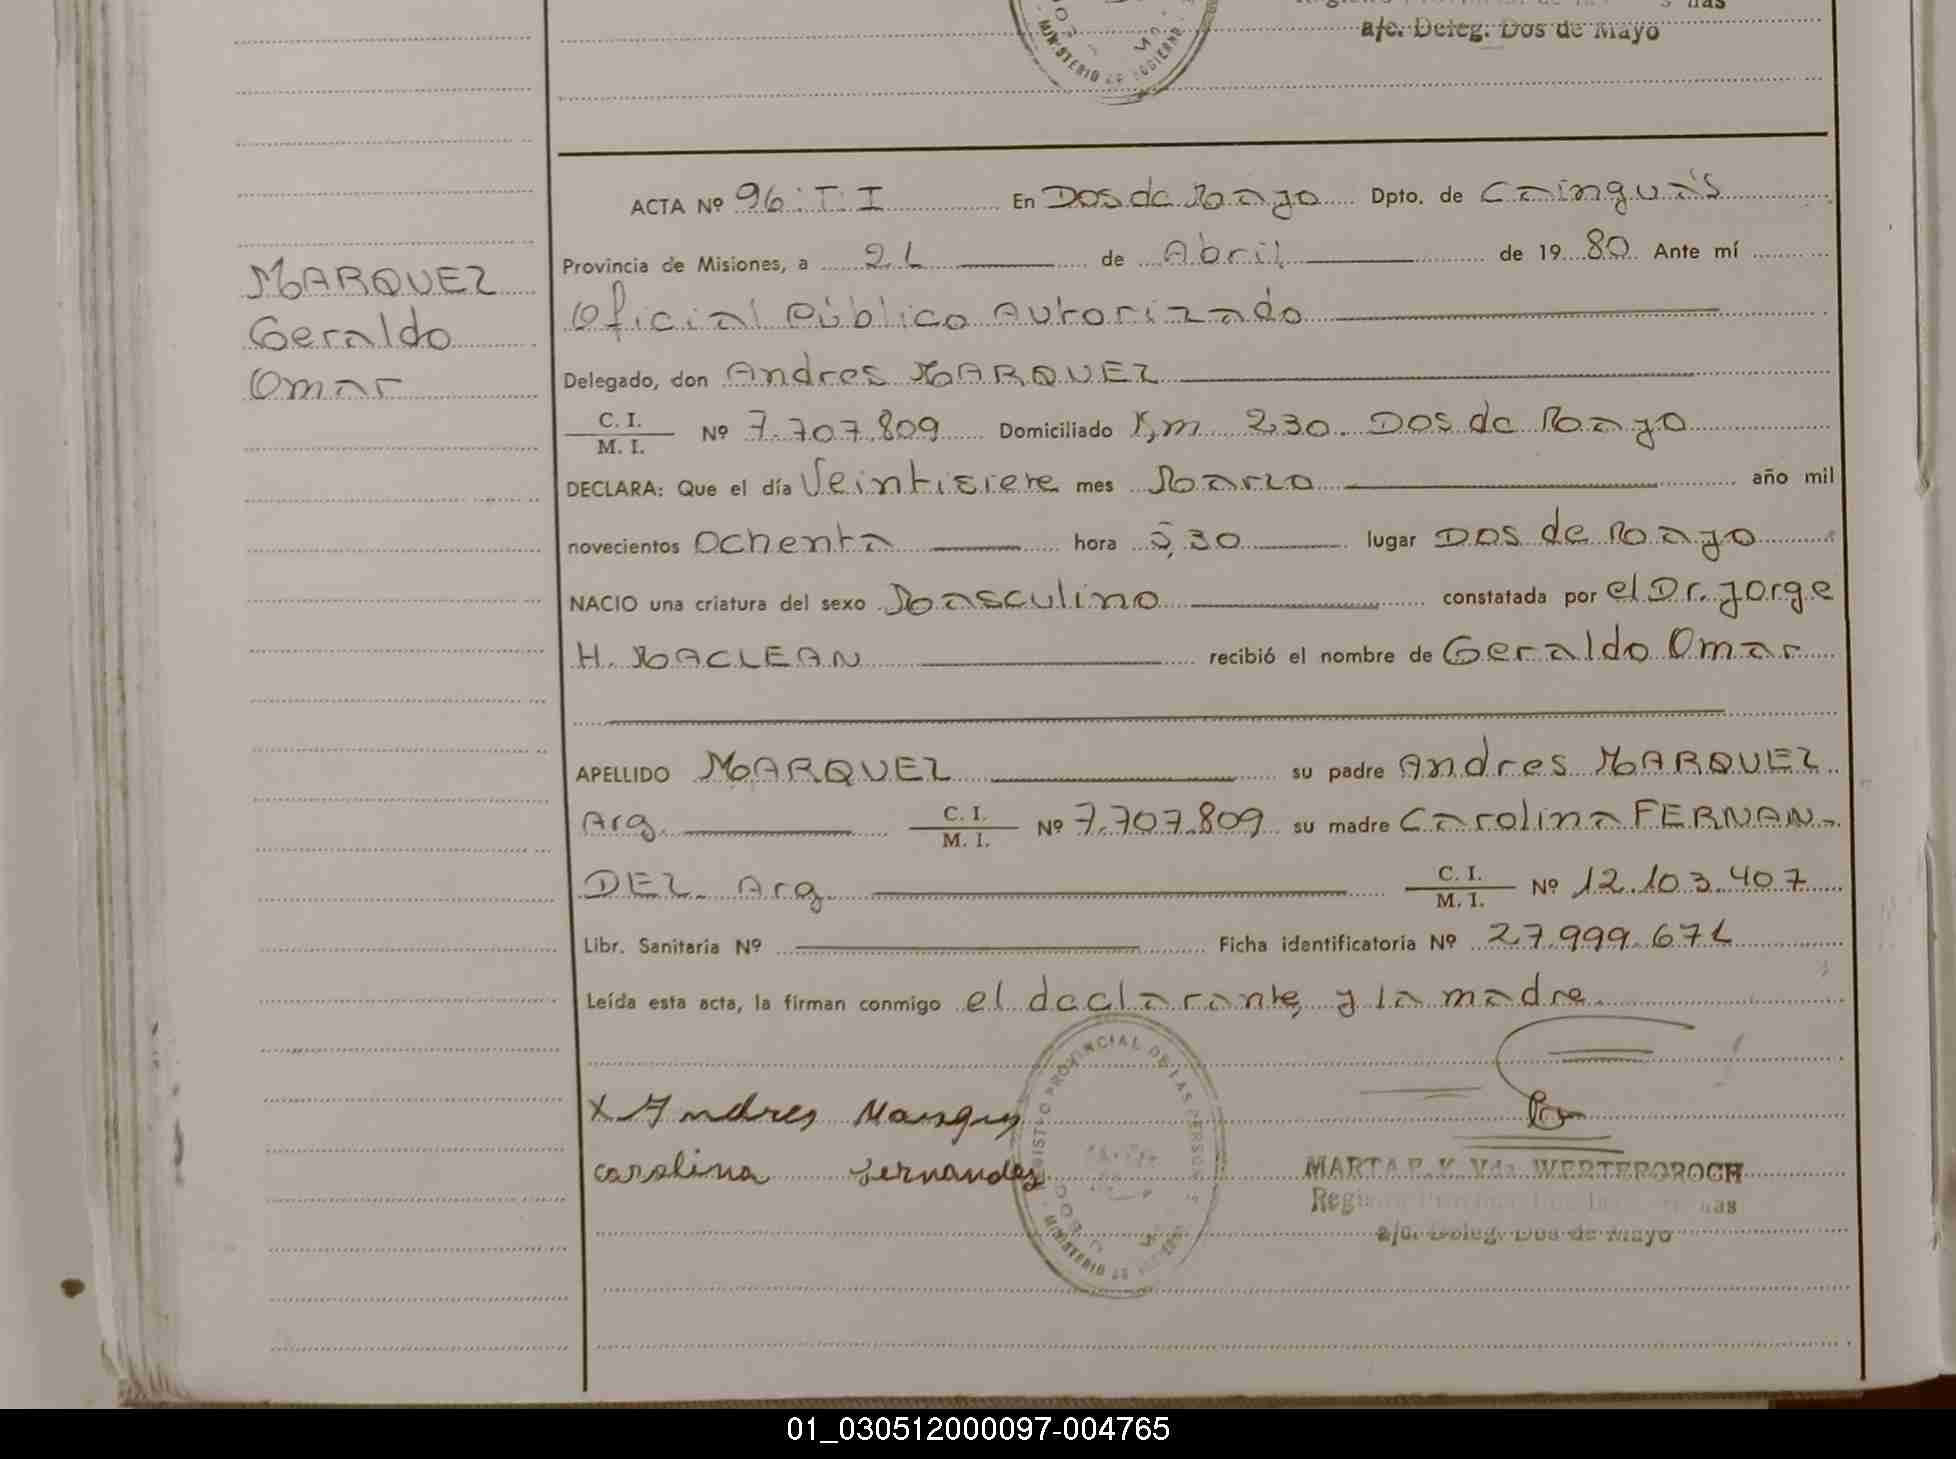 a/c. Deleg. Dos de Mayo
MINISTERIO DE GOBIERNO
MARQUEZ
Geraldo
Omar
ACTA Nº 96 : T. I En Dos de Mayo Dpto. de Cainguás
Provincia de Misiones, a 21 de Abril de 1980 Ante mí
Oficial Público Autorizado
Delegado, don Andres MARQUEZ
C. I.
M. I. Nº 7.707.809 Domiciliado Km 230. Dos de Mayo
DECLARA: Que el día Veintisiete mes Marzo año mil
novecientos Ochenta hora 5,30 lugar Dos de Mayo
NACIO una criatura del sexo Masculino constatada por el Dr. Jorge
H. MACLEAN recibió el nombre de Geraldo Omar
APELLIDO MARQUEZ su padre Andres MARQUEZ
Arg. C. I.
M. I. Nº 7.707.809 su madre Carolina FERNAN-
DEZ. Arg. C. I.
M. I. Nº 12.103.407
Libr. Sanitaria Nº Ficha identificatoria Nº 27.999.671
Leída esta acta, la firman conmigo el declarante y la madre.
REGISTRO PROVINCIAL DE LAS PERSONAS
MINISTERIO DE GOBIERNO
X Andres Marques
carolina fernandez
MARTA E. K. Vda. WERTEPOROCH
Registro Provincial de las Personas
a/c. Deleg. Dos de Mayo
01_030512000097-004765